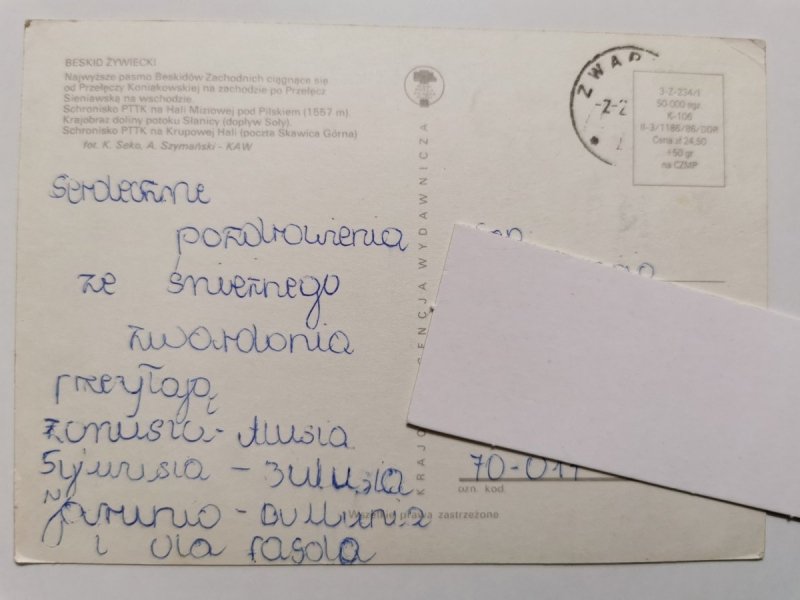 BESKID ŻYWIECKI
Najwyższe pasmo Beskidów Zachodnich ciągnące się
od Przełęczy Koniakowskiej na zachodzie po Przełęcz
Sieniawską na wschodzie.
Schronisko PTTK na Hali Miziowej pod Pilskiem (1557 m).
Krajobraz doliny potoku Slanicy (dopływ Soły).
Schronisko PTTK na Krupowej Hali (poczta Skawica Górna)
fot. K. Seko, A. Szymański - KAW
Serdeczne
pozdrowienia
ze śnieżnego
zwardonia
przeyłają
i ola fasola
GENCJA WYDAWNICZA
KRAJO
ZWAR
3-Z-234/I
50 000 egz.
K-106
II-3/1186/86/DDR
Cena zł 24,50
+50 gr
na CZMP
70-01
ozn. kod
Wszelkie prawa zastrzeżone